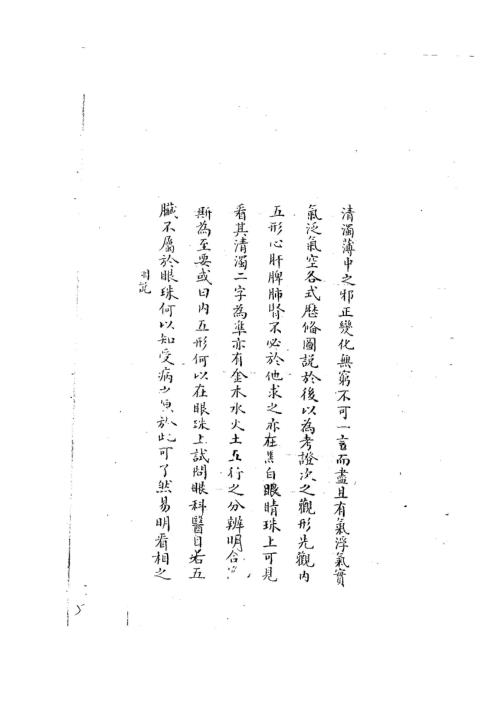 清濁薄中之邪正變化無窮不可一言而盡且有氣浮氣實
氣泛氣空各式歷條圖說於後以為考證次之觀形先觀內
五形心肝脾肺腎不必於他求之亦在黑白眼睛珠上可見
看其清濁二字為準亦有金木水火土五行之分辦明合
斯為至要或曰內五形何以在眼珠上試問眼科醫目若五
臟不屬於眼珠何以知受病 於此可了然易明看相之
5